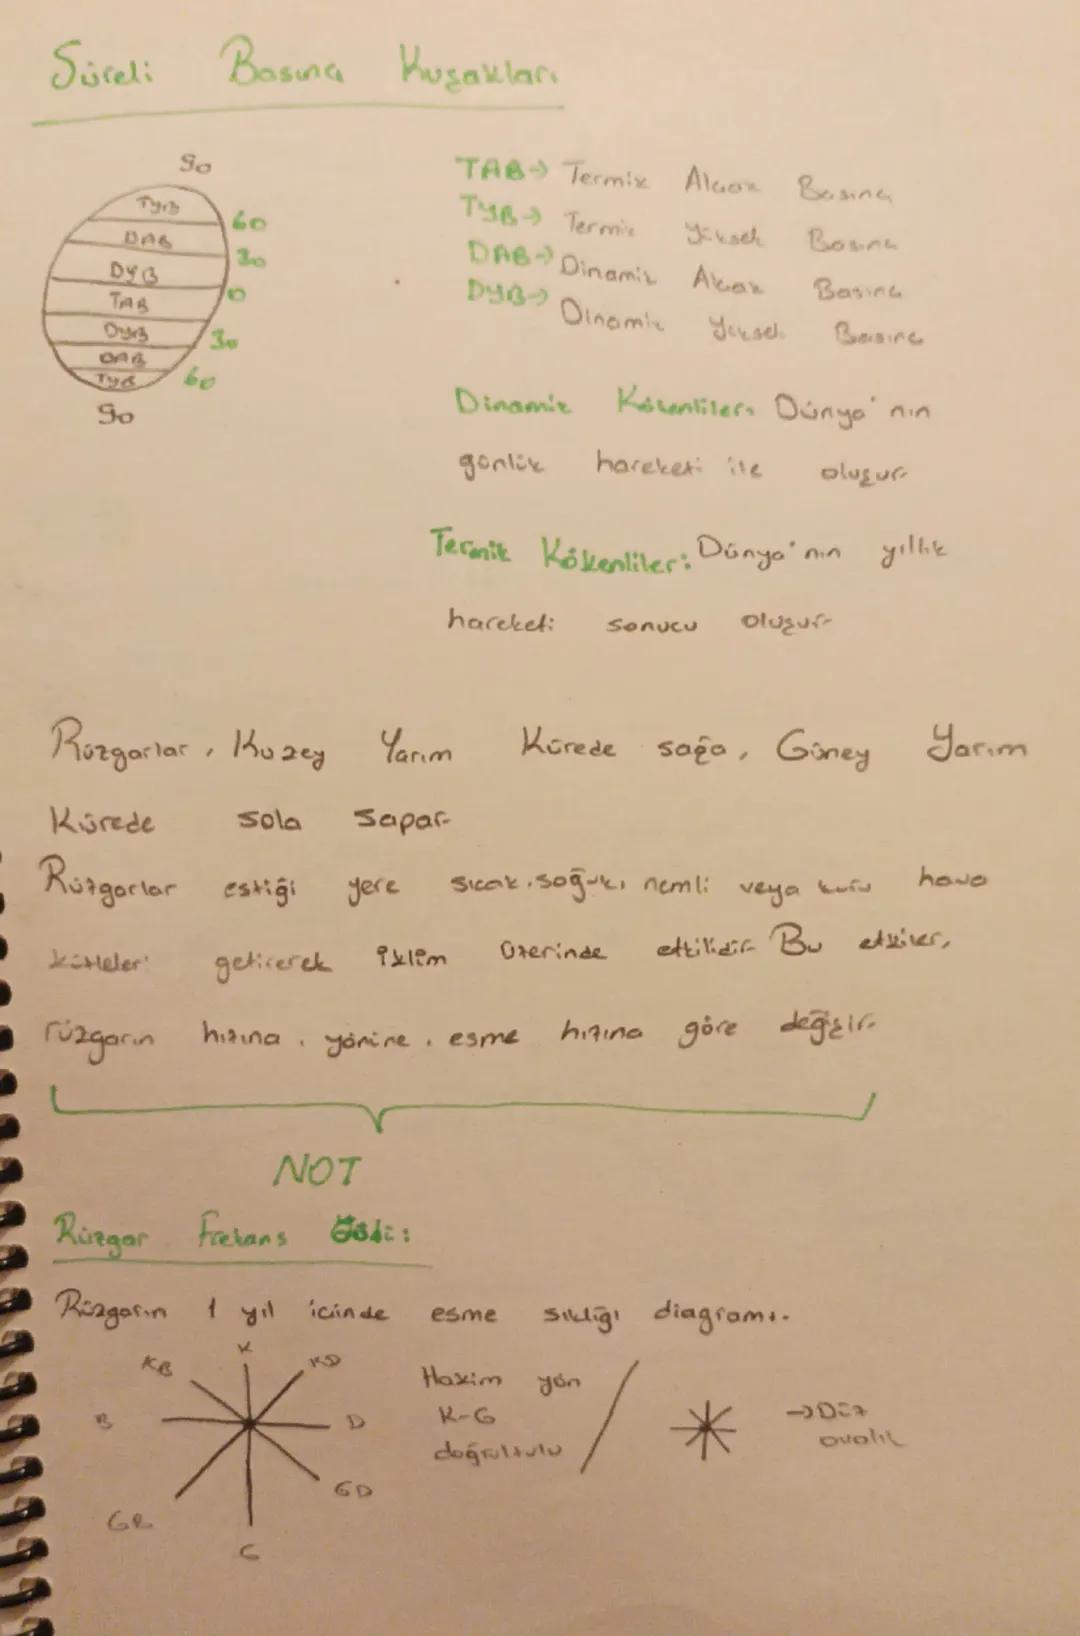 Süreli Basınç Kuşakları
90
TYB
60
DAB
30
DYB
0
TAB
DYB
30
DAB
60
TYB
90
TAB→ Termik Alçak Basınç
TYB→ Termik Yüksek Basınç
DAB→ Dinamik Alçak Basınç
DYB→ Dinamik Yüksek Basınç
Dinamik Kökenliler: Dünya'nın
günlük hareketi ile oluşur
Termik Kökenliler: Dünya'nın yıllık
hareketi sonucu oluşur
Rüzgarlar, Kuzey Yarım Kürede sağa, Güney Yarım
Kürede sola sapar
Rüzgarlar estiği yere sıcak, soğuk, nemli veya kuru hava
kütleleri getirerek iklim üzerinde etkilidir Bu etkiler,
rüzgarın hızına, yönüne, esme hızına göre değişir.
NOT
Rüzgar Frekans Gülü:
Rüzgarın 1 yıl içinde esme sıklığı diagramı.
K
KB
KD
B
D
GB
GD
G
Hakim yön
K-G
doğrultulu
→Düz
ovalık